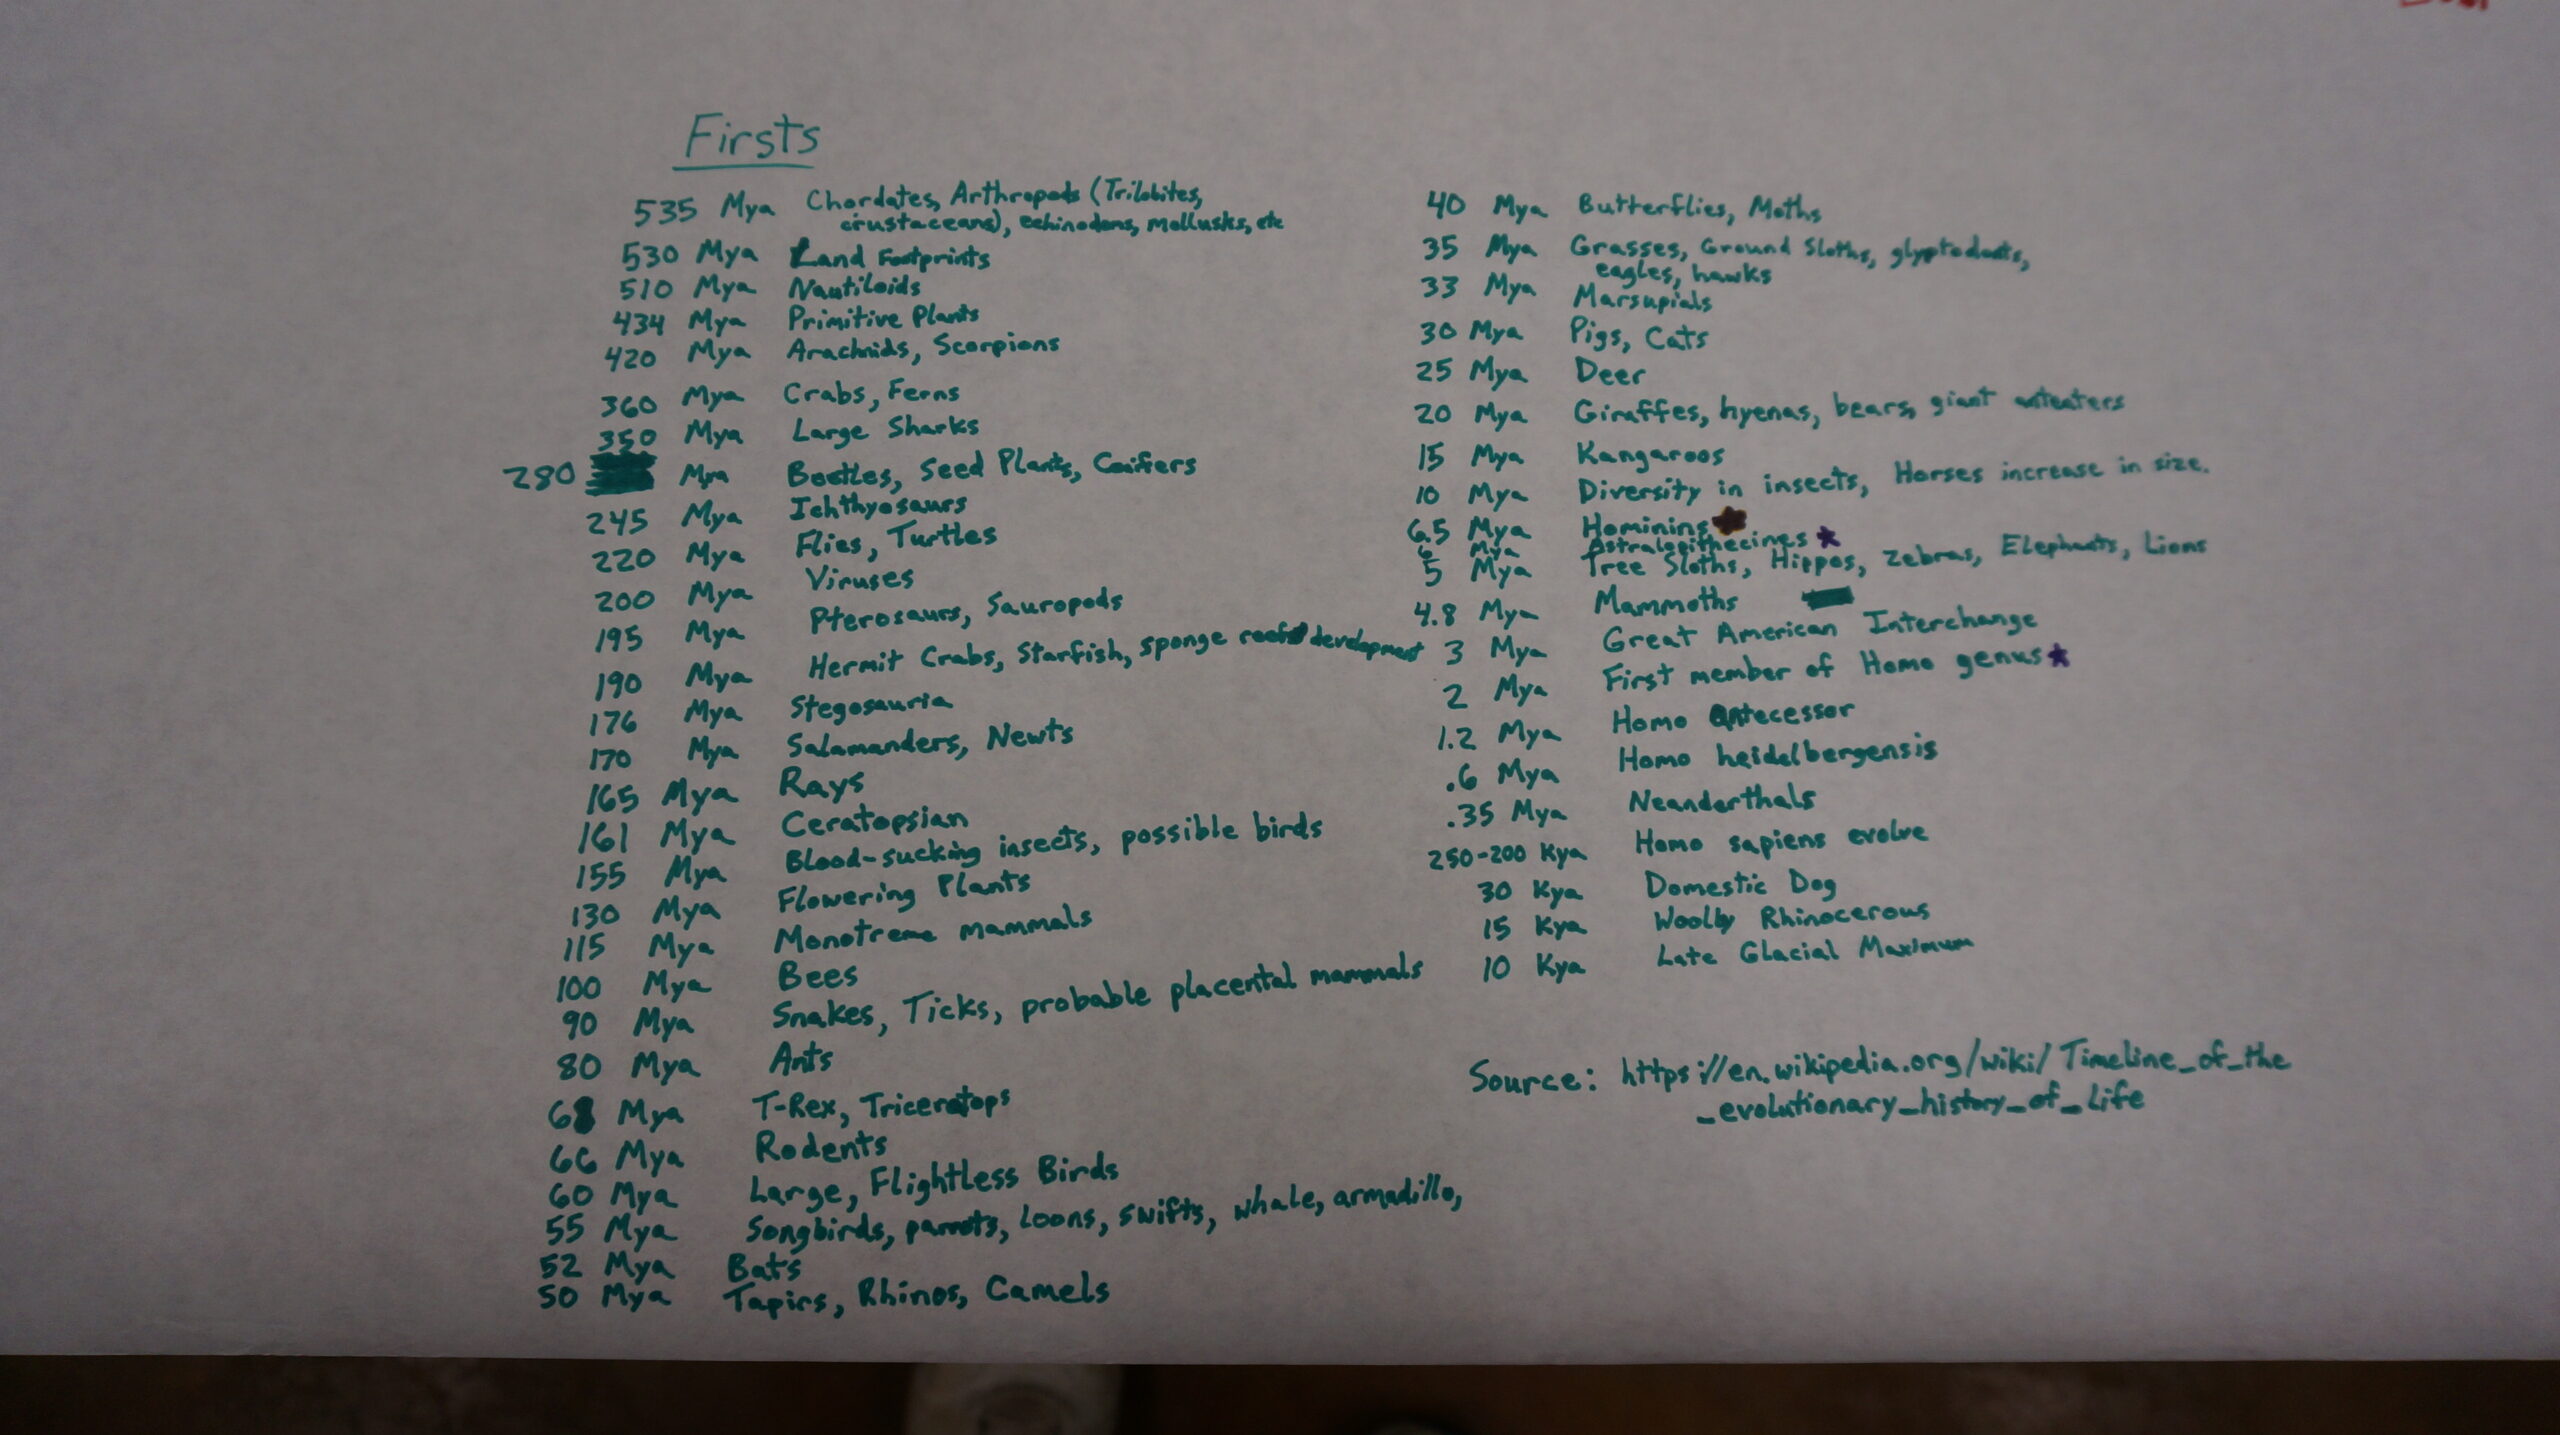 Firsts
535 Mya Chordates, Arthropods (Trilobites,
crustaceans), echinoderms, mollusks, etc
530 Mya Land Footprints
510 Mya Nautiloids
434 Mya Primitive Plants
420 Mya Arachnids, Scorpions
360 Mya Crabs, Ferns
350 Mya Large Sharks
280 Mya Beetles, Seed Plants, Conifers
245 Mya Ichthyosaurs
220 Mya Flies, Turtles
200 Mya Viruses
195 Mya Pterosaurs, Sauropods
190 Mya Hermit Crabs, Starfish, sponge reefs development
176 Mya Stegosauria
170 Mya Salamanders, Newts
165 Mya Rays
161 Mya Ceratopsian
155 Mya Blood-sucking insects, possible birds
130 Mya Flowering Plants
115 Mya Monotreme mammals
100 Mya Bees
90 Mya Snakes, Ticks, probable placental mammals
80 Mya Ants
68 Mya T-Rex, Triceratops
66 Mya Rodents
60 Mya Large, Flightless Birds
55 Mya Songbirds, parrots, Loons, swifts, whale, armadillo,
52 Mya Bats
50 Mya Tapirs, Rhinos, Camels
40 Mya Butterflies, Moths
35 Mya Grasses, Ground Sloths, glyptodonts,
eagles, hawks
33 Mya Marsupials
30 Mya Pigs, Cats
25 Mya Deer
20 Mya Giraffes, hyenas, bears, giant anteaters
15 Mya Kangaroos
10 Mya Diversity in insects, Horses increase in size.
6.5 Mya Hominins
6 Mya Astralopithecines *
5 Mya Tree Sloths, Hippos, Zebras, Elephants, Lions
4.8 Mya Mammoths
3 Mya Great American Interchange
2 Mya First member of Homo genus *
1.2 Mya Homo antecessor
.6 Mya Homo heidelbergensis
.35 Mya Neanderthals
250-200 Kya Homo sapiens evolve
30 Kya Domestic Dog
15 Kya Woolly Rhinocerous
10 Kya Late Glacial Maximum
Source: https://en.wikipedia.org/wiki/Timeline_of_the
_evolutionary_history_of_Life